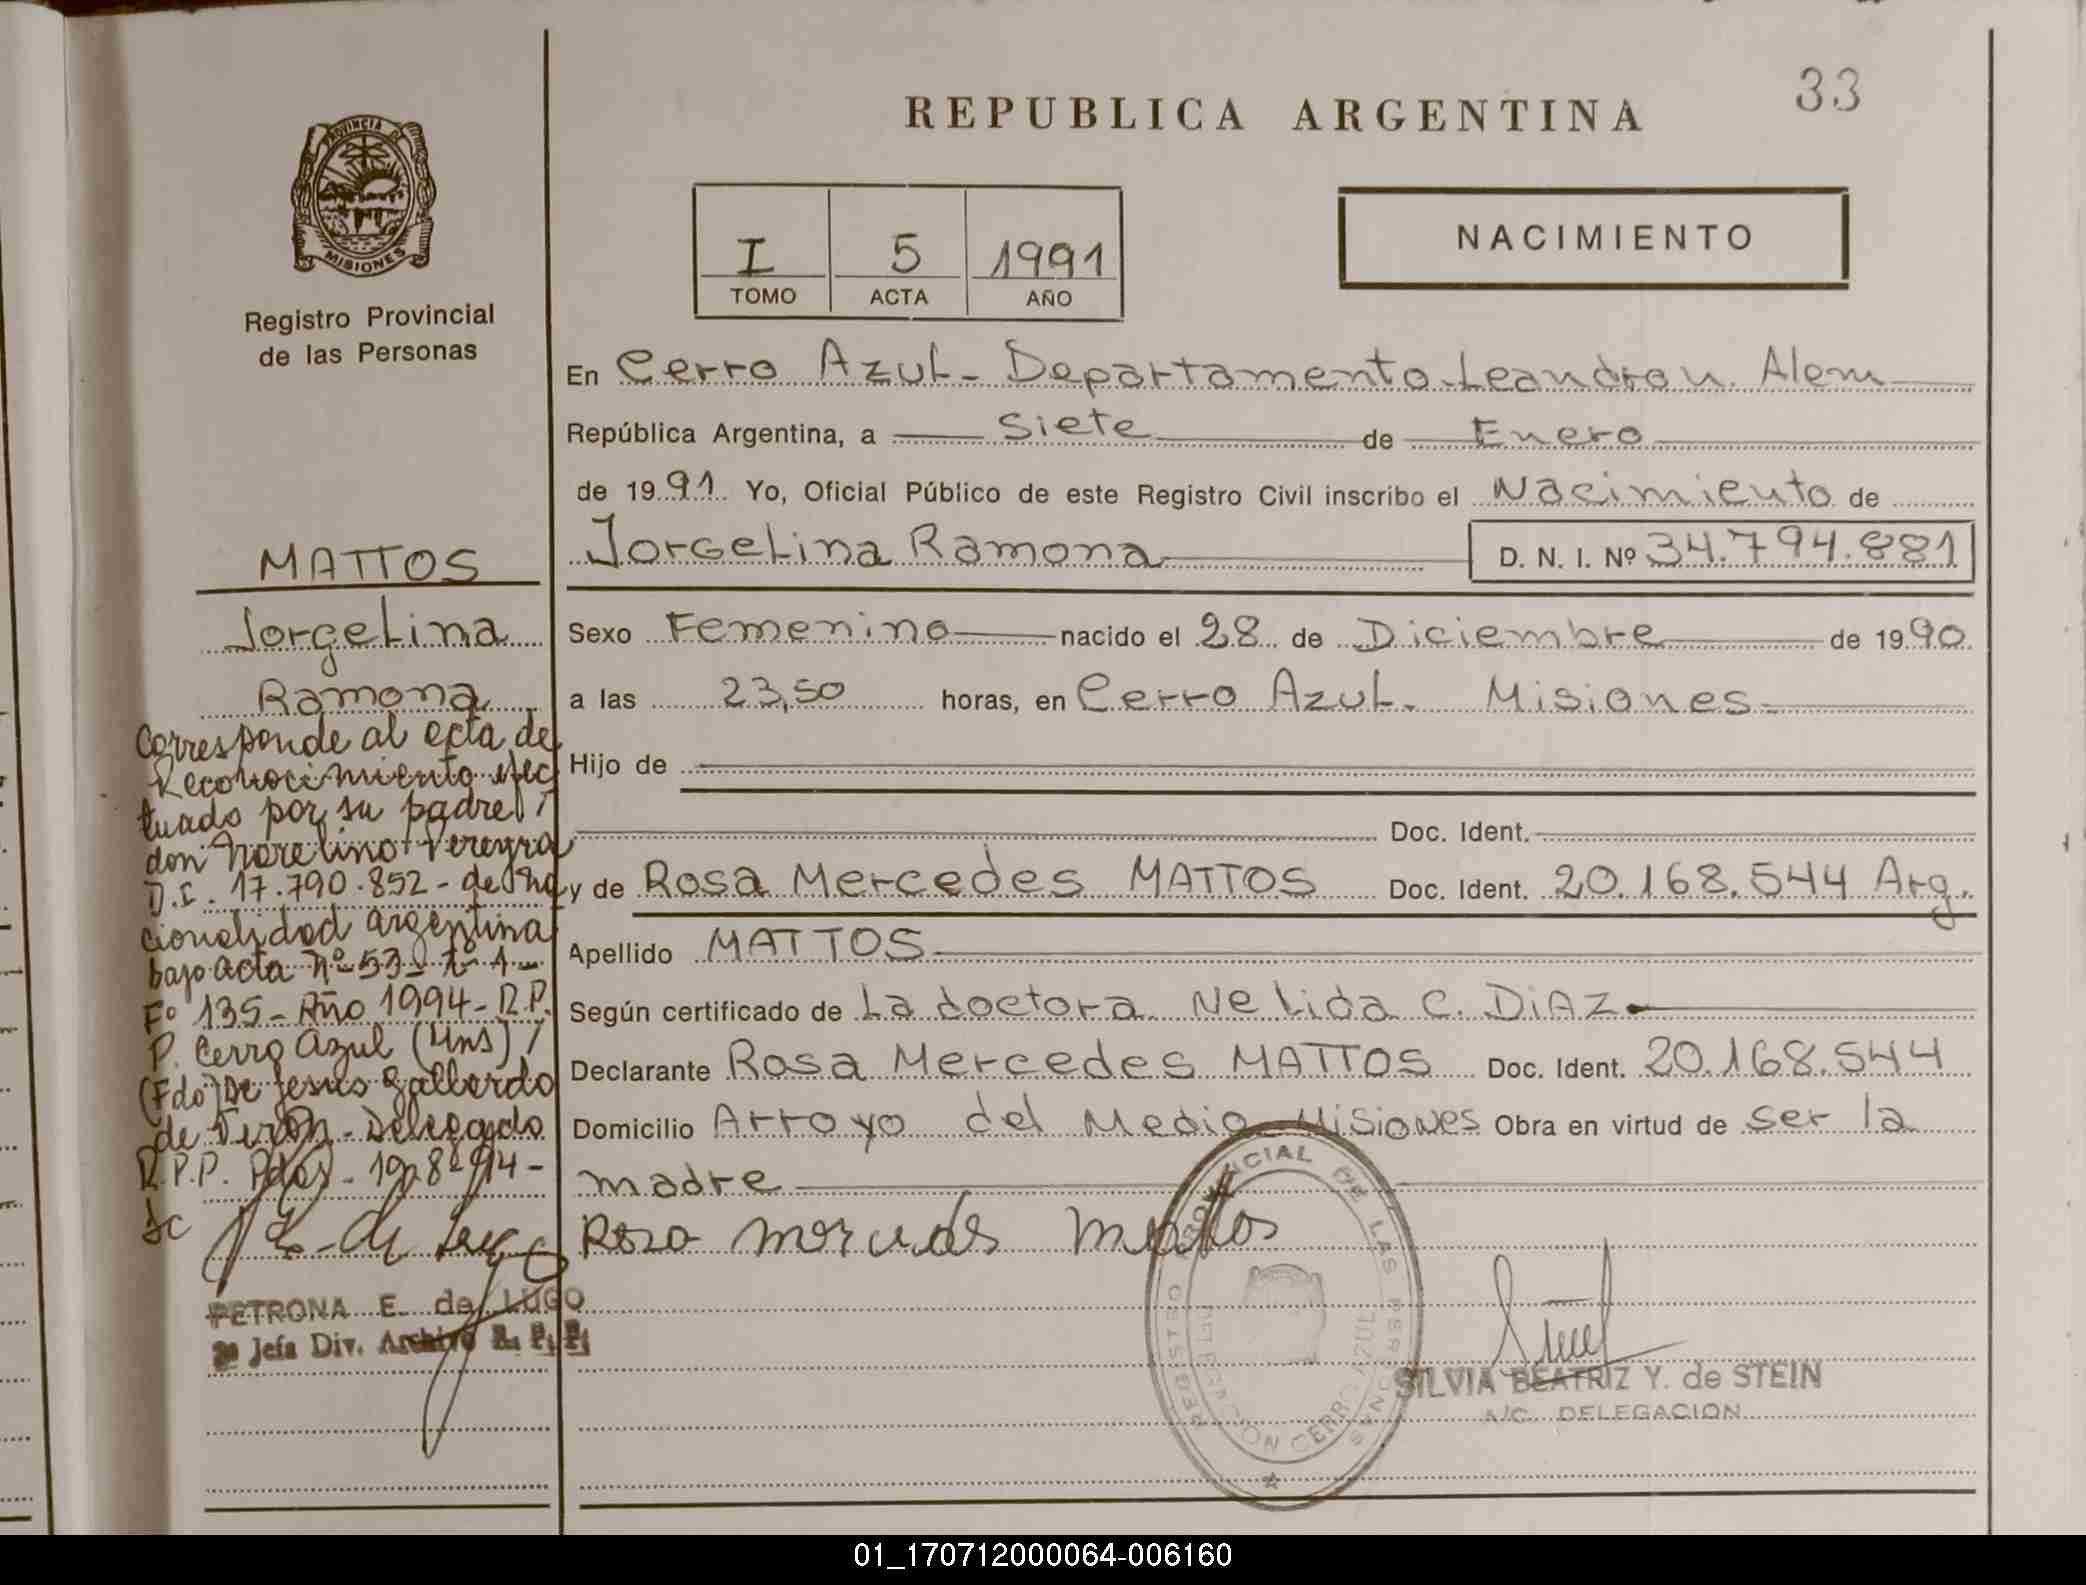 33
REPUBLICA ARGENTINA
PROVINCIA DE
MISIONES
Registro Provincial
de las Personas
I 5 1991
TOMO ACTA AÑO
NACIMIENTO
En Cerro Azul - Departamento Leandro N. Alem
República Argentina, a Siete de Enero
de 1991 Yo, Oficial Público de este Registro Civil inscribo el Nacimiento de
Jorgelina Ramona D. N. I. Nº 34.794.881
Sexo Femenino nacido el 28 de Diciembre de 1990
a las 23,50 horas, en Cerro Azul. Misiones
Hijo de
Doc. Ident.
y de Rosa Mercedes MATTOS Doc. Ident. 20.168.544 Arg.
Apellido MATTOS
Según certificado de La doctora Nelida C. DIAZ
Declarante Rosa Mercedes MATTOS Doc. Ident. 20.168.544
Domicilio Arroyo del Medio Misiones Obra en virtud de ser la
madre
Rosa Mercedes Mattos
REGISTRO PROVINCIAL DE LAS PERSONAS
DELEGACION CERRO AZUL
SILVIA BEATRIZ Y. de STEIN
A/C. DELEGACION
MATTOS
Jorgelina
Ramona
Corresponde al acta de
Reconocimiento efec
tuado por su padre /
don Pereyra
D.I. 17.790.852 - de na
cionalidad argentina
bajo acta Nº 53 - Tº 1 -
Fº 135 - Año 1994 - R.P.
P. Cerro Azul (Mns) /
(Fdo) De Jesus Gallardo
de - Delegado
R.P.P. Pdas - 19-8-94 -
PETRONA E. de LUGO
2ª Jefa Div. Archivo R. P. P.
01_170712000064-006160